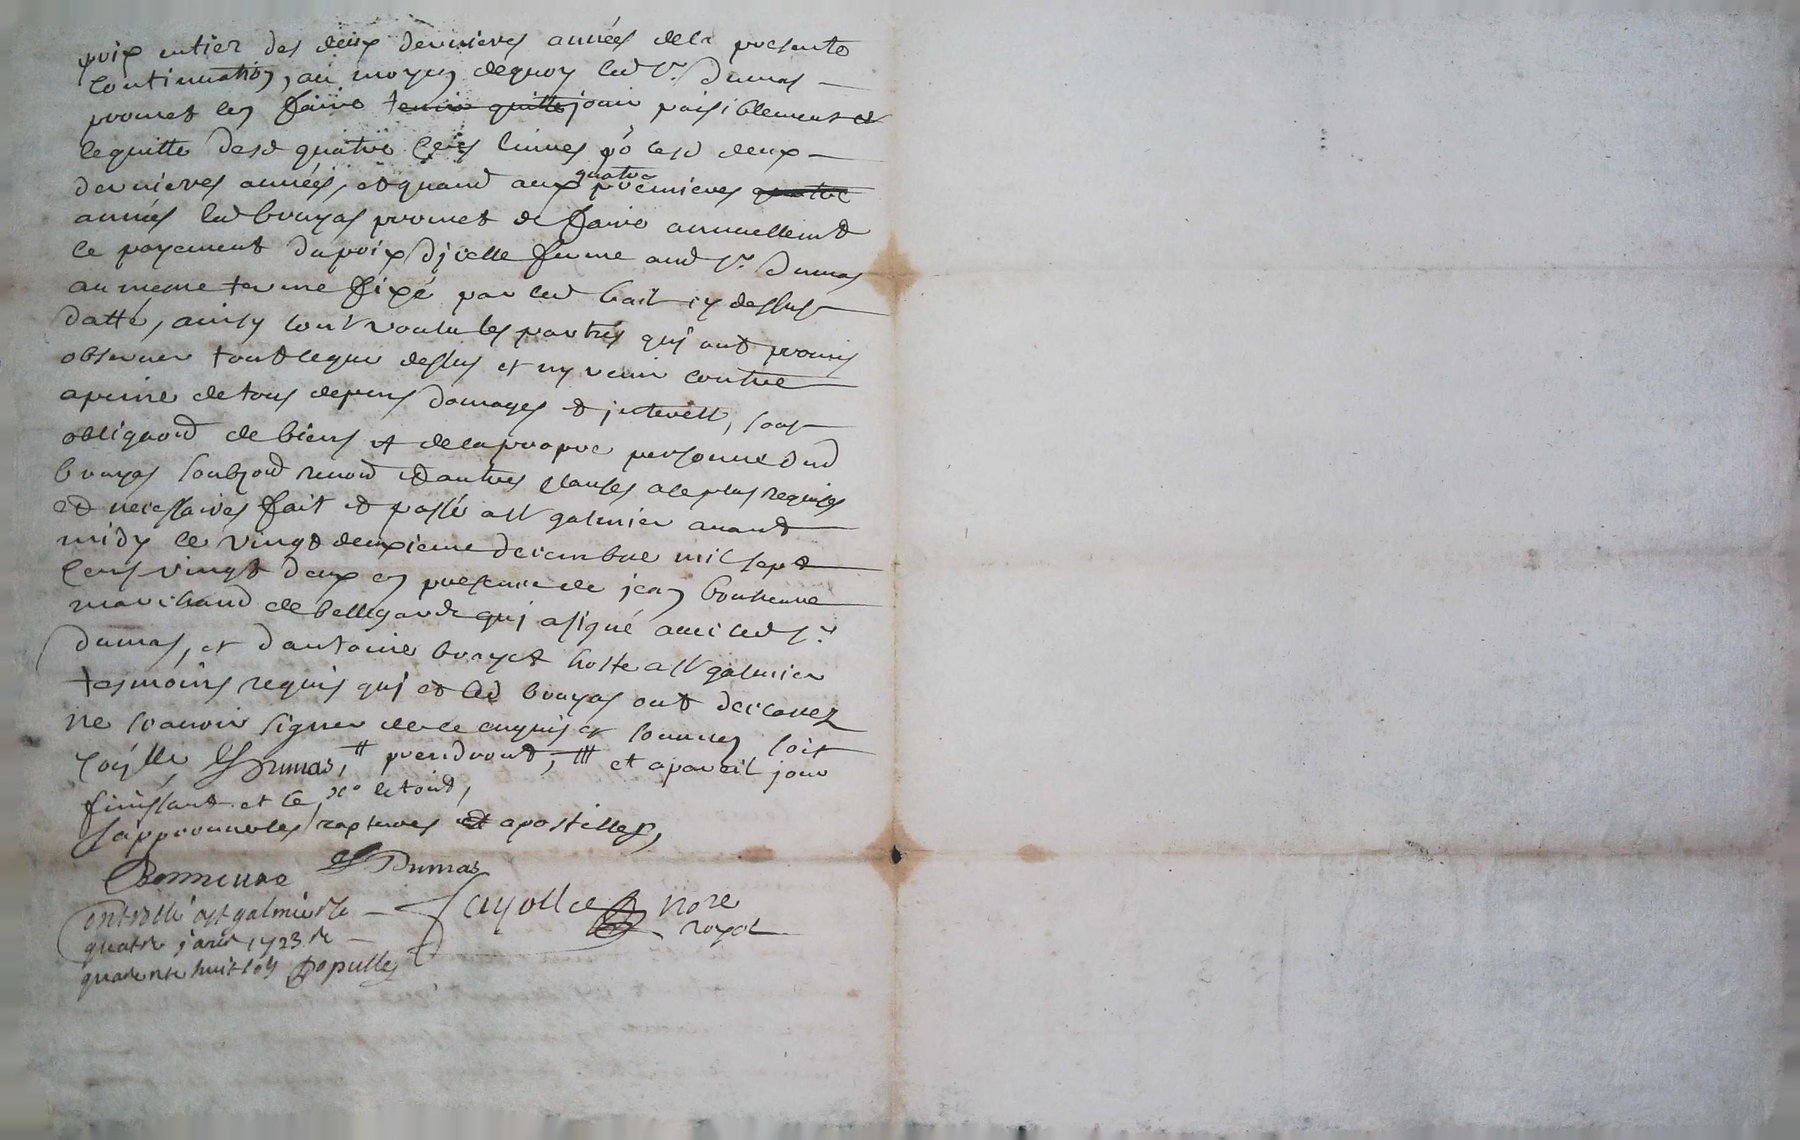 prix entier des deux dernieres années dela presente
continuation, au moyen dequoy led Sr. Dumas
promet len faire tenir quitte jouir paisiblement et
lequitte desd quatre cens livres po lesd deux
dernieres années, et quand aux quatre premieres quatre
années led bouyas promet de faire annuellemt
le payement du prix djcelle ferme aud Sr. Dumas
au meme terme fixé par led bail cy dessus
datté, ainsy lont voulu les parties qui ont promis
observer tout ceque dessus et ny venir contre
apeine de tous depens domages et jnterest, sous
obligaond de biens et de sa propre personne dud
bouyas renond et autres clauses ace plus requises
et necessaires fait et passé a St galmier avant
midy le vingt deuxieme decembre mil sept
cens vingt deux en presence de jean bonneure
marchand de bellegarde qui a signé avec led Sr.
Dumas, et dantoine bouyet hoste a St galmier
tesmoins requis qui et led bouyas ont declarez
ne scavoir signer de ce enquis et sommez soit
Dumas, prendront, et apareil jour
finissant et le
japprouve les et apostilles,
Bonneure Dumas
controllé a st galmier le Jayolle nore
quatre janvr 1723 R royal
quarente huit sols